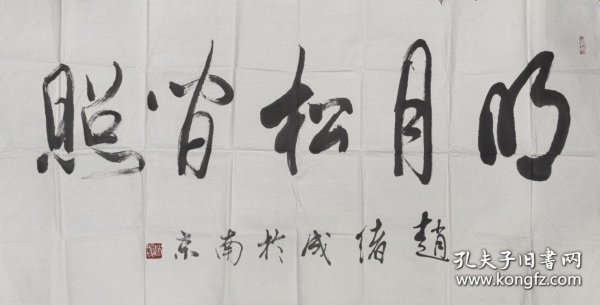 明月松间照
赵绪成於南京
孔夫子旧书网
www.kongfz.com